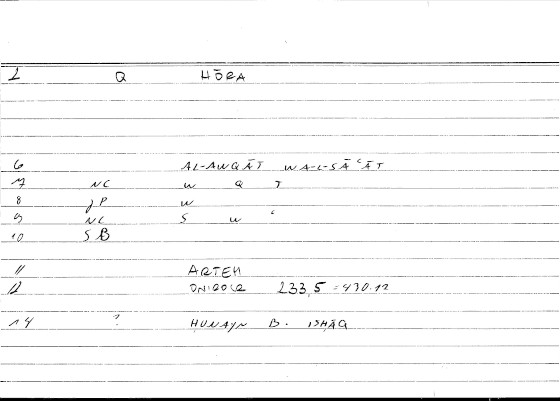 1 Q HŌRA
6 AL-AWQĀT WA-L-SĀʿĀT
7 NC W Q T
8 JP W
9 NC S W ʿ
10 SB
11 ARTEM
12 233,5 = 430.12
14 ? ḤUNAYN B. ISḤĀQ